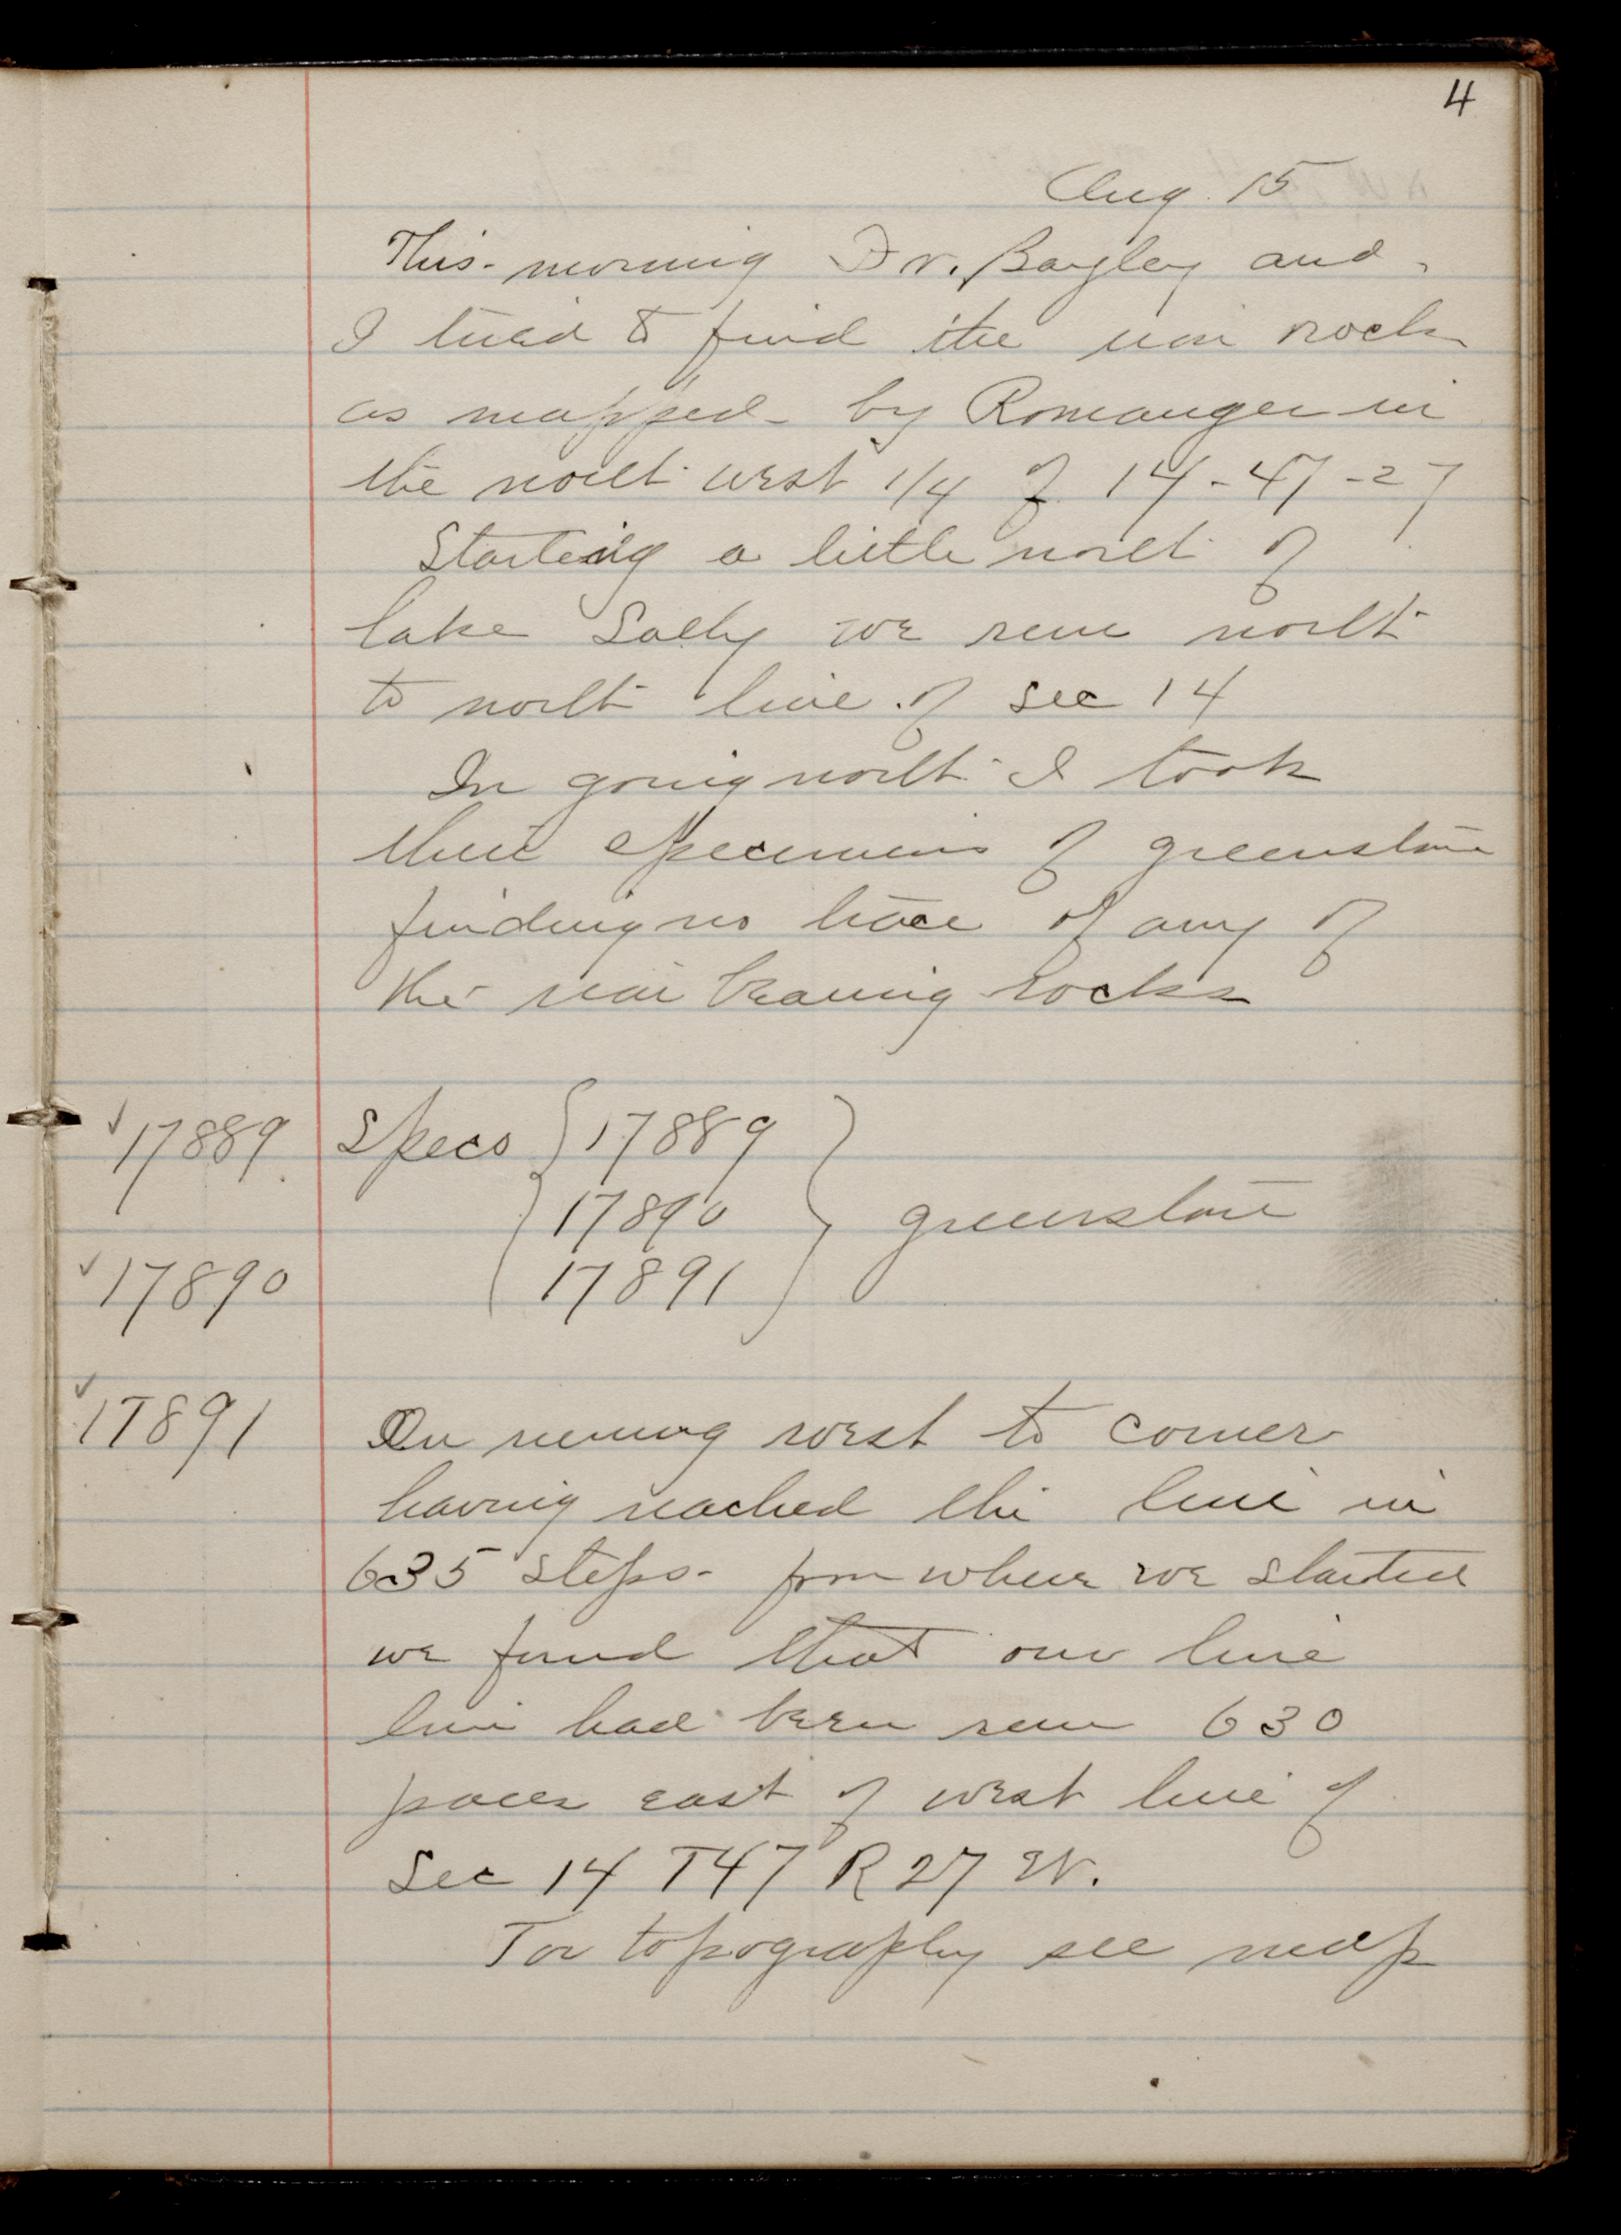 4
Aug. 15
This morning Dr. Bayley and
I tried to find the iron rock
as mapped by Romanger in
the north west 1/4 of 14-47-27
Starting a little north of
lake Sally we run north
to north line of Sec 14
In going north I took
three specimens of greenstone
finding no trace of any of
the iron bearing rocks
17889 Specs { 17889 }
17890 greenstone
17890 17891
17891 On running west to corner
having reached the line in
635 steps from where we started
we found that our line
line had been run 630
paces east of west line of
Sec 14 T47 R27 W.
For topography see map